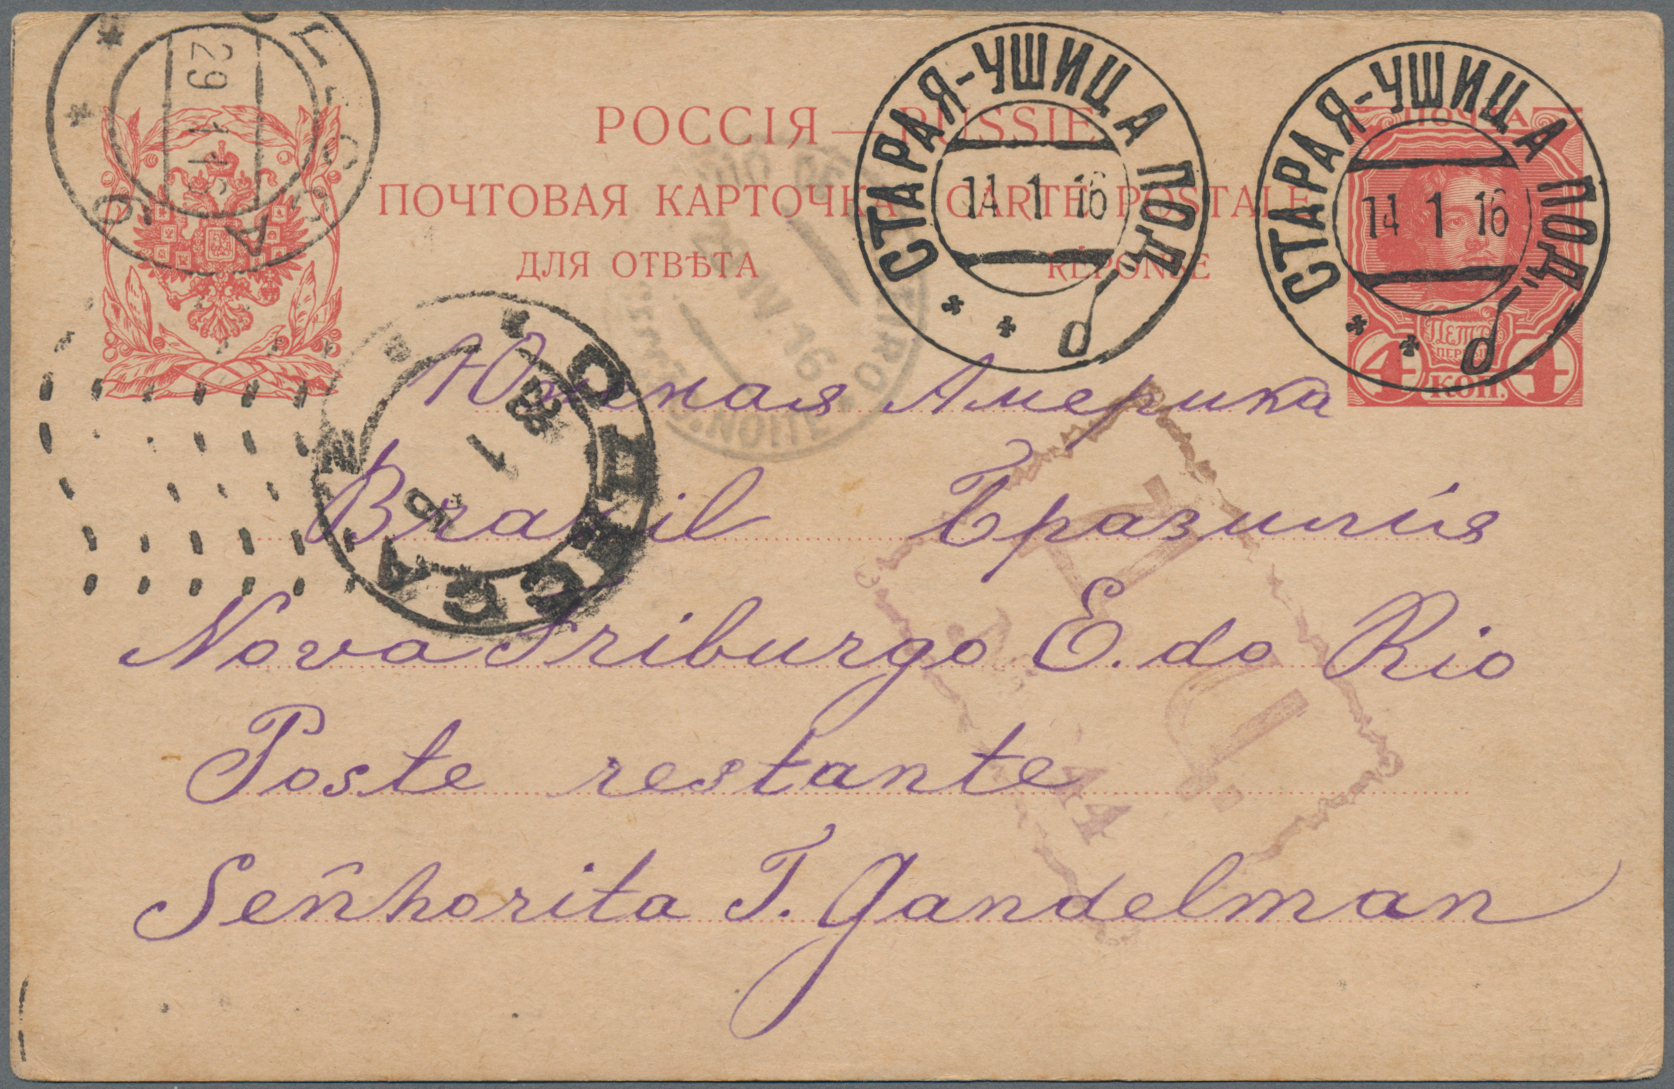 РОССІЯ — RUSSIE
ПОЧТОВАЯ КАРТОЧКА — CARTE POSTALE
ДЛЯ ОТВѢТА — RÉPONSE
СТАРАЯ-УШИЦА ПОД.
14 1 16
СТАРАЯ-УШИЦА ПОД.
14 1 16
ПОЧТА
ПЕТРЪ
ПЕРВЫЙ
4 КОП. 4
ОДЕССА
29 1 16
ОДЕССА
1
RIO DE JANEIRO
IV 16
NOITE
Южная Америка
Brazil Бразилія
Nova Friburgo E. do Rio
Poste restante
Señhorita T. Gandelman
Д. Ц.
44